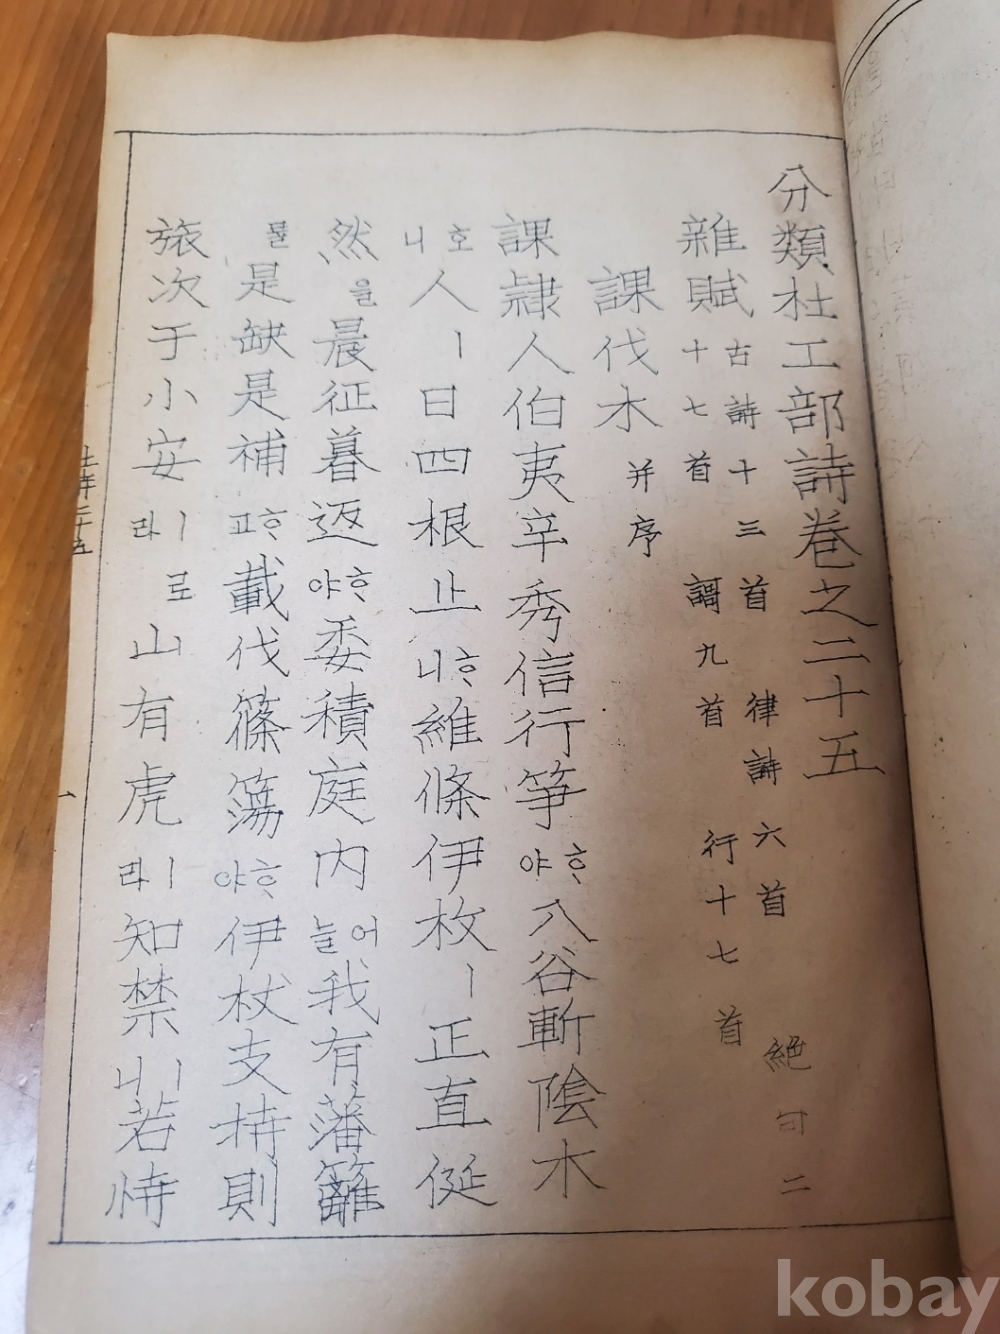 分類杜工部詩卷之二十五
雜賦 古詩十三首 律詩六首 絕句二
十七首 謌九首 行十七首
課伐木 幷序
課隷人伯夷辛秀信行等ᄒᆞ야入谷斬陰木호
니人ㅣ日四根止ᄒᆞ니維條伊枚ㅣ正直侹
然을晨征暮返ᄒᆞ야委積庭內어늘我有藩籬
是缺是補ᄒᆞ고載伐篠簜ᄒᆞ야伊杖支持則
旅次于小安ㅣ라山有虎ㅣ라知禁ㅣ니若恃
kobay